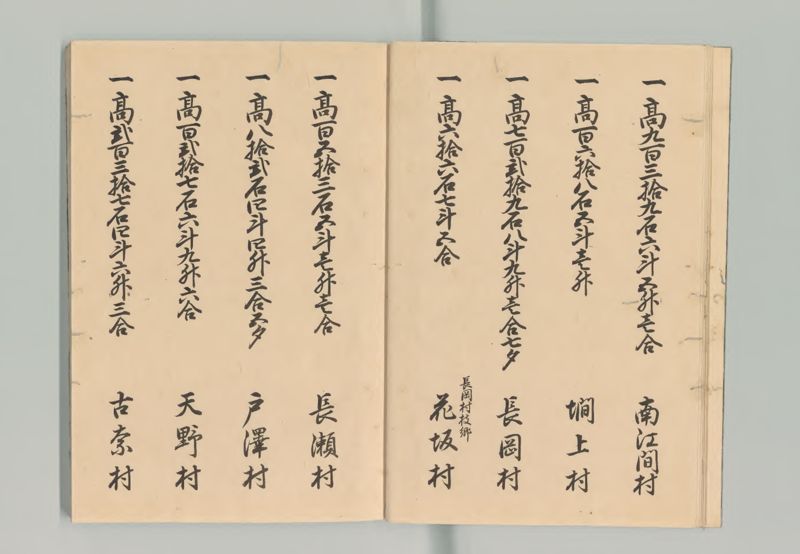 一高九百三拾九石六斗五升壱合 南江間村
一高百六拾八石五斗壱升 壗上村
一高七百弐拾九石八斗九升壱合七夕 長岡村
一高六拾六石七斗五合 長岡村枝郷 花坂村
一高百五拾三石五斗壱升壱合 長瀬村
一高八拾弐石四斗四升三合五夕 戸澤村
一高百弐拾七石六斗九升六合 天野村
一高弐百三拾七石四斗六升三合 古奈村